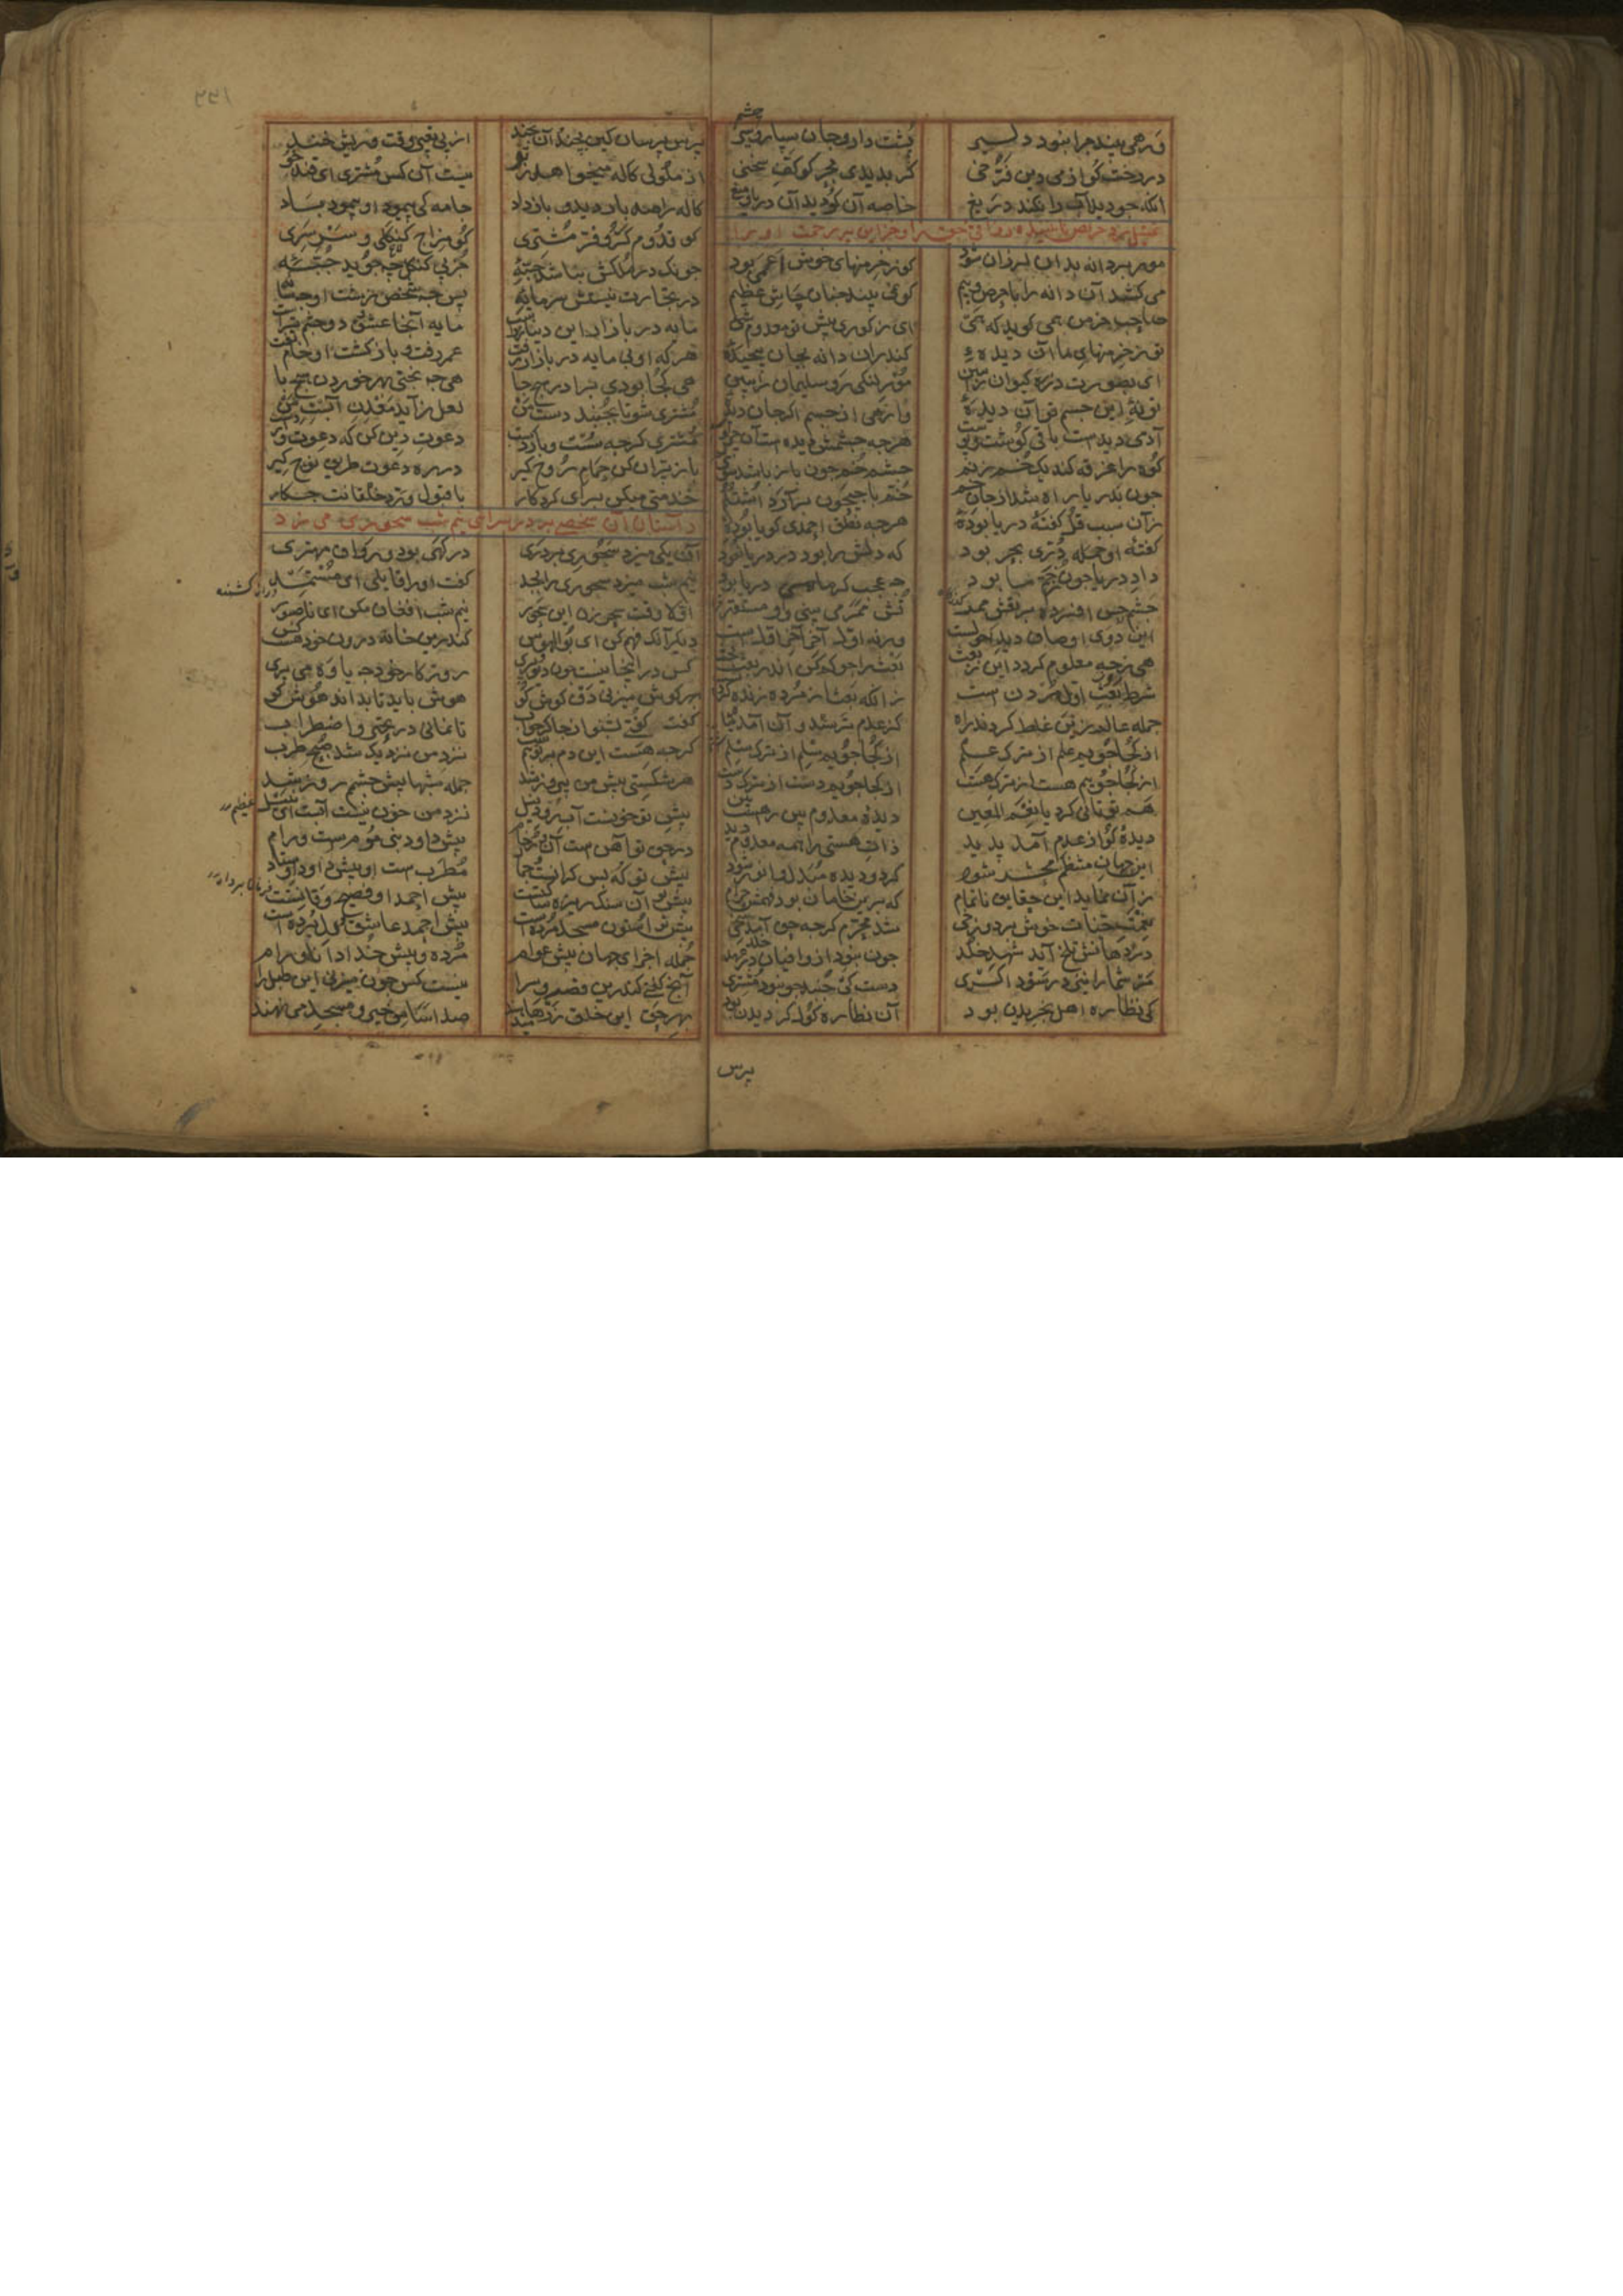 ورهمی بیند چرا نبود دلیر پشت دارد جان سپار و چشم سیر
در رخت کو از می دین فرخی گر بدیدی بحر کو کف سخی
آنکه جو دید آب را نکند دریغ خاصه آن کو دید آن دریا و میغ
تمثیل مرد حریص نابیننده رزاقی حق را و خزاین رحمت او را
مور بر دانه بدان لرزان شود کو ز خرمنهای خوش اعمی بود
می کشد آن دانه را با حرص و بیم کو نمی بیند چنان چاش عظیم
صاحب خرمن همی گوید که هی ای ز کوری پیش تو معدوم شی
تو ز خرمنهای ما آن دیدهٔ کندران دانه بجان پیچیدهٔ
ای بصورت ذره کیوان را ببین مور لنگی رو سلیمان را ببین
تو نهٔ این جسم تو آن دیدهٔ وارهی از جسم اگر جان دیدهٔ
آدمی دیدست باقی گوشت و پوست هرچه چشمش دیده است آن چیز اوست
کوه را غرقه کند یک خم ز نم چشم خم چون باز باشد سوی یم
چون بدریا راه شد از جان خم خم با جیحون برآرد اشتلم
زآن سبب قل گفتهٔ دریا بود هرچه نطق احمدی گویا بود
گفتهٔ او جمله در بحر بود که دلش را بود در دریا نفوذ
داد دریا چون ز خم ما بود چه عجب گر ماهیی دریا بود
چشم حس افسرده بر نقش ممر تش ممر می بینی و او مستقر
این دوی اوصاف دید احولست ورنه اول آخر آخر اولست
هی ز چه معلوم گردد این ز بعث بعث را جو کم کن اندر بعث بحث
شرط بعث اول مردن است زانکه بعث از مرده زنده کردنست
جمله عالم زین غلط کردند راه کز عدم ترسند و آن آمد پناه
از کجا جوییم علم از ترک علم از کجا جوییم سلم از ترک سلم
از کجا جوییم هست از ترک هست از کجا جوییم دست از ترک دست
هم تو تانی کرد یا نعم المعین دیدهٔ معدوم بین را هست بین
دیدهٔ کو از عدم آمد پدید ذات هستی را همه معدوم دید
این جهان منتظم محشر شود گر دو دیده مبدل و انور شود
زآن نماید این حقایق ناتمام که برین خامان بود فهمش حرام
نعمت جنات خوش بر دوزخی شد محرم گرچه حق آمد سخی
در دهانش تلخ آید شهد خلد چون نبود از وافیان در عهد خلد
مر شما را نیز در سوداگری دست کی جنبد چو نبود مشتری
کی نظاره اهل بخریدن بود آن نظاره گول گردیدن بود
پرس
پرس پرسان کین بچند آن بچند از پی تعبیر وقت و ریش خند
از ملولی کاله میخواهد ز تو نیست آن کس مشتری ای قند جو
کاله را صد بار دید و باز داد جامه کی پیمود او پیمود باد
کو قدوم کر و فر مشتری کو مزاح گنگلی و سرسری
چونک در ملکش نباشد حبهٔ جز پی گنگل چه جوید جبهٔ
در تجارت نیستش سرمایهٔ پس چه شخص زشت او چه سایهٔ
مایه در بازار این دنیا زرست مایه آنجا عشق و دو چشم ترست
هر که او بی مایه در بازار رفت عمر رفت و بازگشت او خام تفت
هی کجا بودی برادر هیچ جا هی چه پختی بهر خوردن هیچ با
مشتری شو تا بجنبد دست من لعل زاید معدن آبست من
مشتری گرچه سست و باردست دعوت دین کن که دعوت واردست
باز پران کن حمام روح گیر در ره دعوت طریق نوح گیر
خدمتی میکن برای کردگار با قبول و رد خلقانت چکار
داستان آن شخص که بر در سرای نیم شب سحوری می زد
آن یکی میزد سحوری بر دری درگهی بود و رواق مهتری
نیم شب میزد سحوری را بجد گفت او را قایلی ای مستمد
اولا وقت سحر زن این سحور نیم شب افغان مکن ای ناصبور
دیگر آنک فهم کن ای بوالهوس کندرین خانه درون خود هست کس
کس درینجا نیست جز دیو و پری روزگار خود چه یاوه می بری
بهر گوش میزنی دف گوش کو هوش باید تا بداند هوش کو
گفت گفتی بشنو از چاکر جواب تا نمانی در تحیر و اضطراب
گرچه هست این دم بر تو نیم شب نزد من نزدیک شد صبح طرب
هر شکستی پیش من پیروز شد جمله شبها پیش چشمم روز شد
پیش تو خونست آب رود نیل نزد من خون نیست آبست ای نبیل
در حق تو آهن است آن و رخام پیش داود نبی مومست و رام
پیش تو که بس گرانست و جماد مطرب ست او پیش داود اوستاد
پیش تو آن سنگ ریزه ساکتست پیش احمد او فصیح و قانتست
پیش تو استون مسجد مرده است پیش احمد عاشقی دل برده است
جمله اجزای جهان پیش عوام مرده و پیش خدا دانا و رام
آنچ گفتی کاندرین قصر و سرا نیست کس چون میزنی این طبل را
بهر حق این خلق زرها میدهند صد اساس خیر و مسجد می نهند